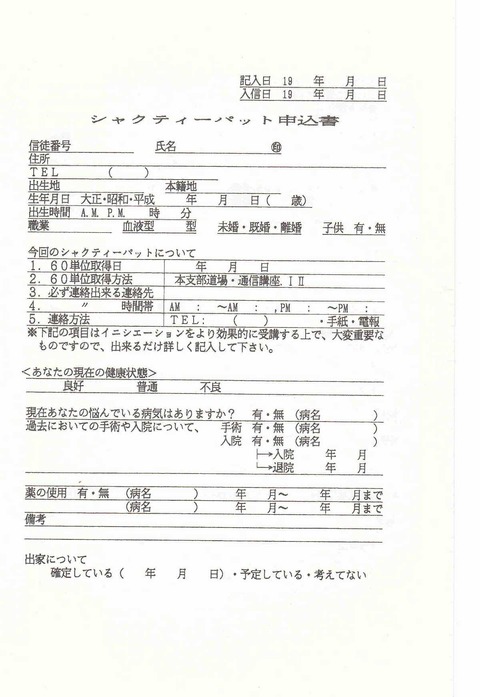 記入日 19 年 月 日
入信日 19 年 月 日
シャクティーパット申込書
信徒番号 氏名 ㊞
住所
TEL ( )
出生地 本籍地
生年月日 大正・昭和・平成 年 月 日( 歳)
出生時間 A.M. P.M. 時 分
職業 血液型 型 未婚・既婚・離婚 子供 有・無
今回のシャクティーパットについて
1. 60単位取得日 年 月 日
2. 60単位取得方法 本支部道場・通信講座.ⅠⅡ
3. 必ず連絡出来る連絡先
4. 〃 時間帯 AM : ~AM : ,PM : ~PM :
5. 連絡方法 TEL: ( ) ・手紙・電報
※下記の項目はイニシエーションをより効果的に受講する上で、大変重要な
ものですので、出来るだけ詳しく記入して下さい。
<あなたの現在の健康状態>
良好 普通 不良
現在あなたの悩んでいる病気はありますか? 有・無 (病名 )
過去においての手術や入院について、 手術 有・無 (病名 )
入院 有・無 (病名 )
├→入院 年 月
└→退院 年 月
薬の使用 有・無 (病名 ) 年 月~ 年 月まで
(病名 ) 年 月~ 年 月まで
備考
出家について
確定している( 年 月 日)・予定している・考えてない